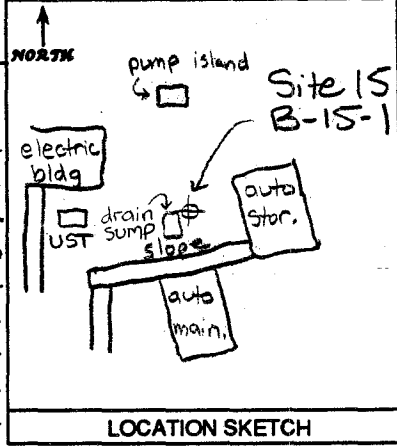 NORTH
pump island
Site 15
B-15-1
electric
bldg
auto
stor.
drain
sump
UST
slope
auto
main.
LOCATION SKETCH